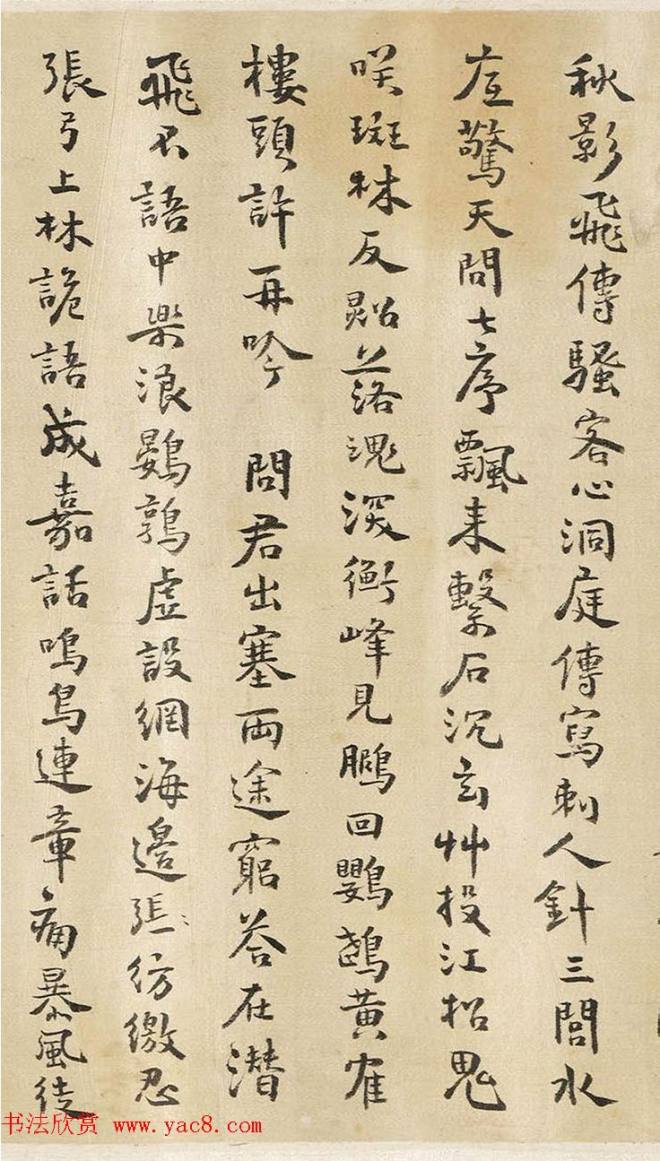 秋影飛傳騷客心洞庭傳寫刺人針三閭水
府驚天問七序飄来繫石沉玄艸投江招鬼
咲斑林反照落溷深衡峰見鵬回鸚鵡黃雀
樓頭許再吟 問君出塞兩途窮荅在潜
飛不語中樂浪鷃鶉虛設網海邊張彷繳忍
張弓上林詭語成嘉話鳴鳥連章痛暴風徒
书法欣赏 www.yac8.com